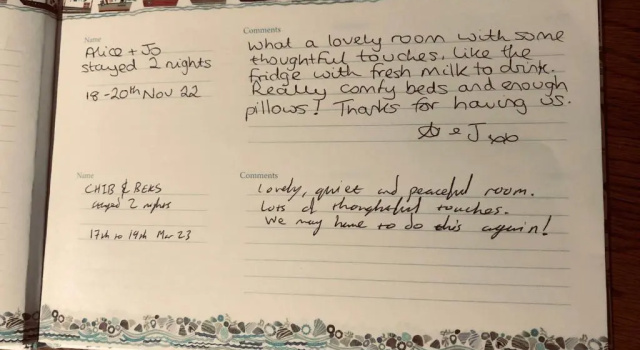 Name
Alice + Jo
stayed 2 nights
18-20th Nov 22
Comments
What a lovely room with some
thoughtful touches. Like the
fridge with fresh milk to drink.
Really comfy beds and enough
pillows! Thanks for having us.
A & J xoxo
Name
CHIB & BEKS
stayed 2 nights
17th to 19th Mar 23
Comments
Lovely, quiet and peaceful room.
Lots of thoughtful touches.
We may have to do this again!